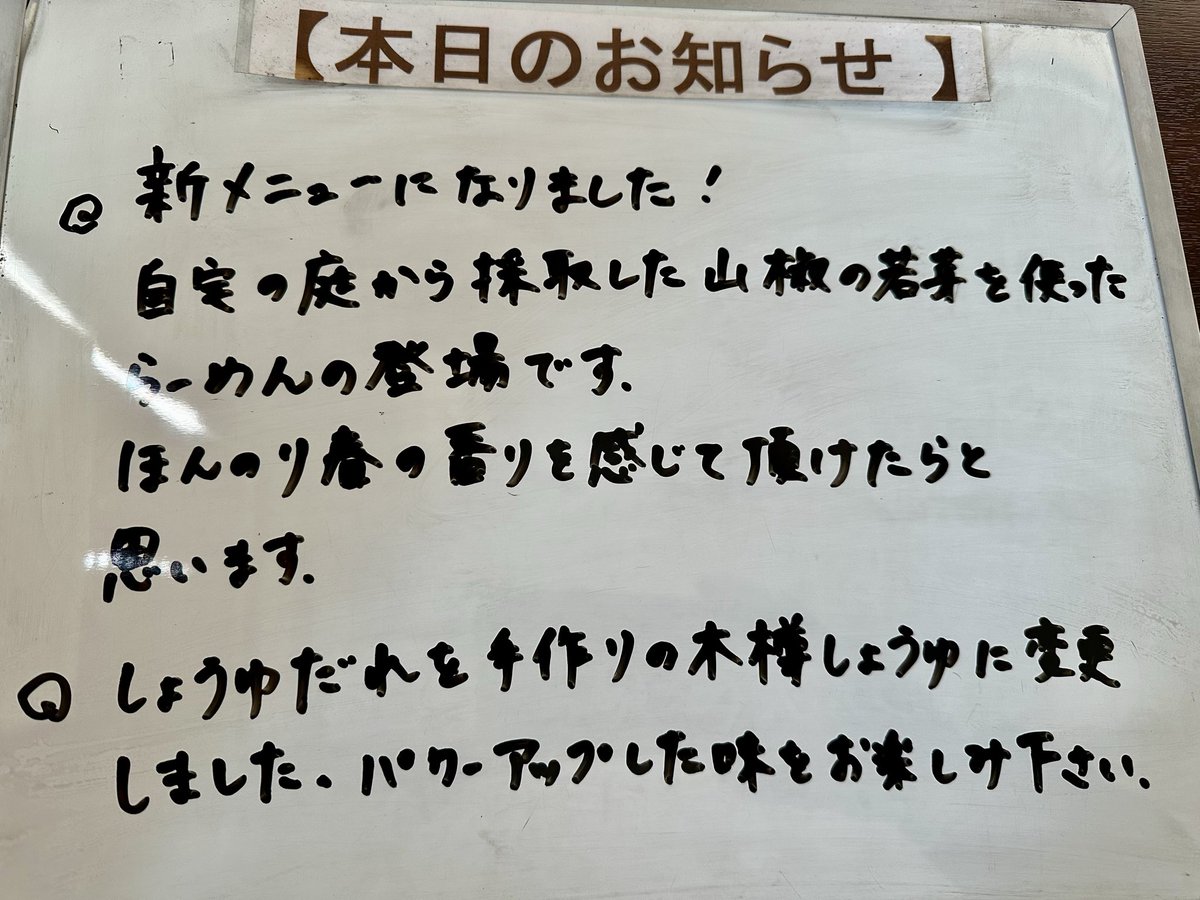 【本日のお知らせ】
新メニューになりました!
自宅の庭から採取した山椒の若芽を使った
らーめんの登場です.
ほんのり春の香りを感じて頂けたらと
思います.
しょうゆだれを手作りの木樽しょうゆに変更
しました、パワーアップした味をお楽しみ下さい.